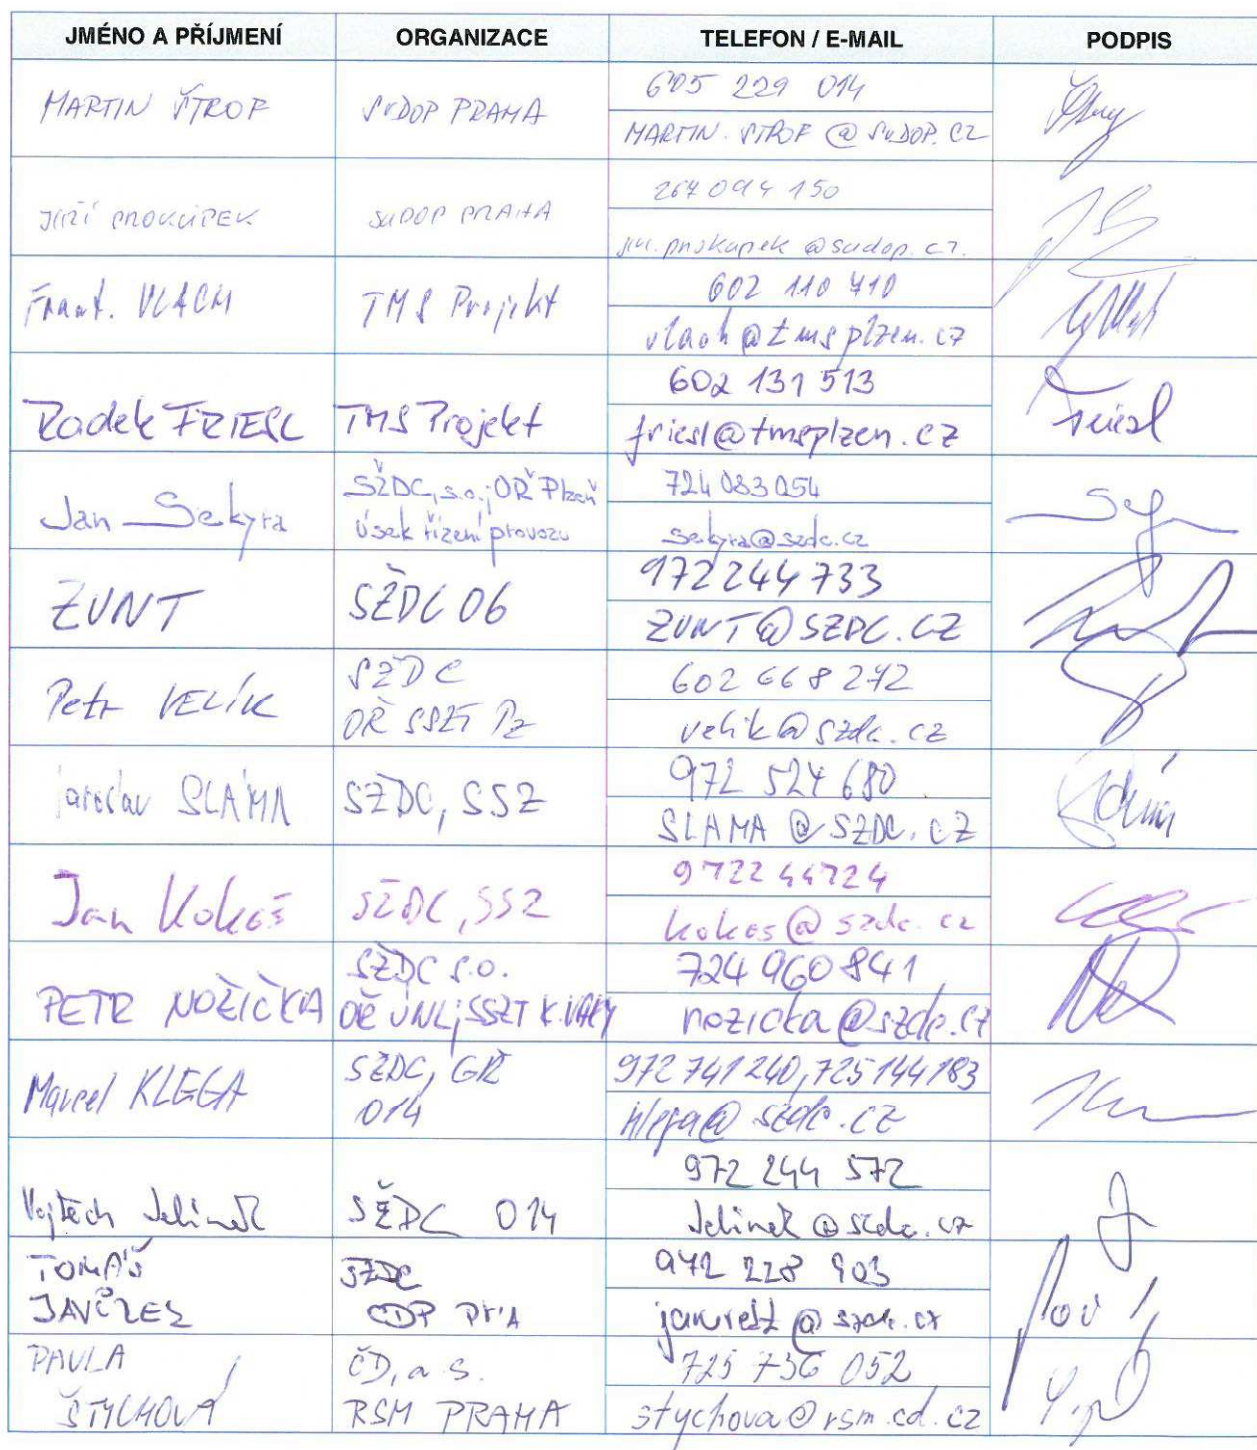 JMÉNO A PŘÍJMENÍ ORGANIZACE TELEFON / E-MAIL PODPIS
MARTIN ŠTROF SUDOP PRAHA 605 229 014
MARTIN.STROF@SUDOP.CZ
JIŘÍ PROKŮPEK SUDOP PRAHA 267 094 150
jiri.prokupek@sudop.cz
Frant. VLACH TMS Projekt 602 110 410
vlach@tmsplzen.cz
Radek FRIESL TMS Projekt 602 131 513
friesl@tmsplzen.cz
Friesl
Jan Sekyra SŽDC, s.o.; OŘ Plzeň 724 083 054
úsek řízení provozu sekyra@szdc.cz
ŽUNT SŽDC O6 972 244 733
ZUNT@SZDC.CZ
Petr VELÍK SŽDC 602 668 272
OŘ SSZT Pz velik@szdc.cz
Jaroslav SLÁMA SŽDC, SSZ 972 524 680
SLAMA@SZDC.CZ
Jan Kokeš SŽDC, SSZ 972244724
kokes@szdc.cz
PETR NOŽIČKA SŽDC s.o. 724 960 841
OŘ ÚNL; SSZT K.VARY nozicka@szdc.cz
Marcel KLEGA SŽDC, GŘ 972 741 240, 725 144 183
O14 klega@szdc.cz
Vojtěch Jelínek SŽDC O14 972 244 572
Jelinek@szdc.cz
TOMÁŠ SŽDC 972 228 903
JAVŮREK CDP PHA
PAVLA ČD, a.s. 725 736 052
ŠTYCHOVÁ RSM PRAHA stychova@rsm.cd.cz